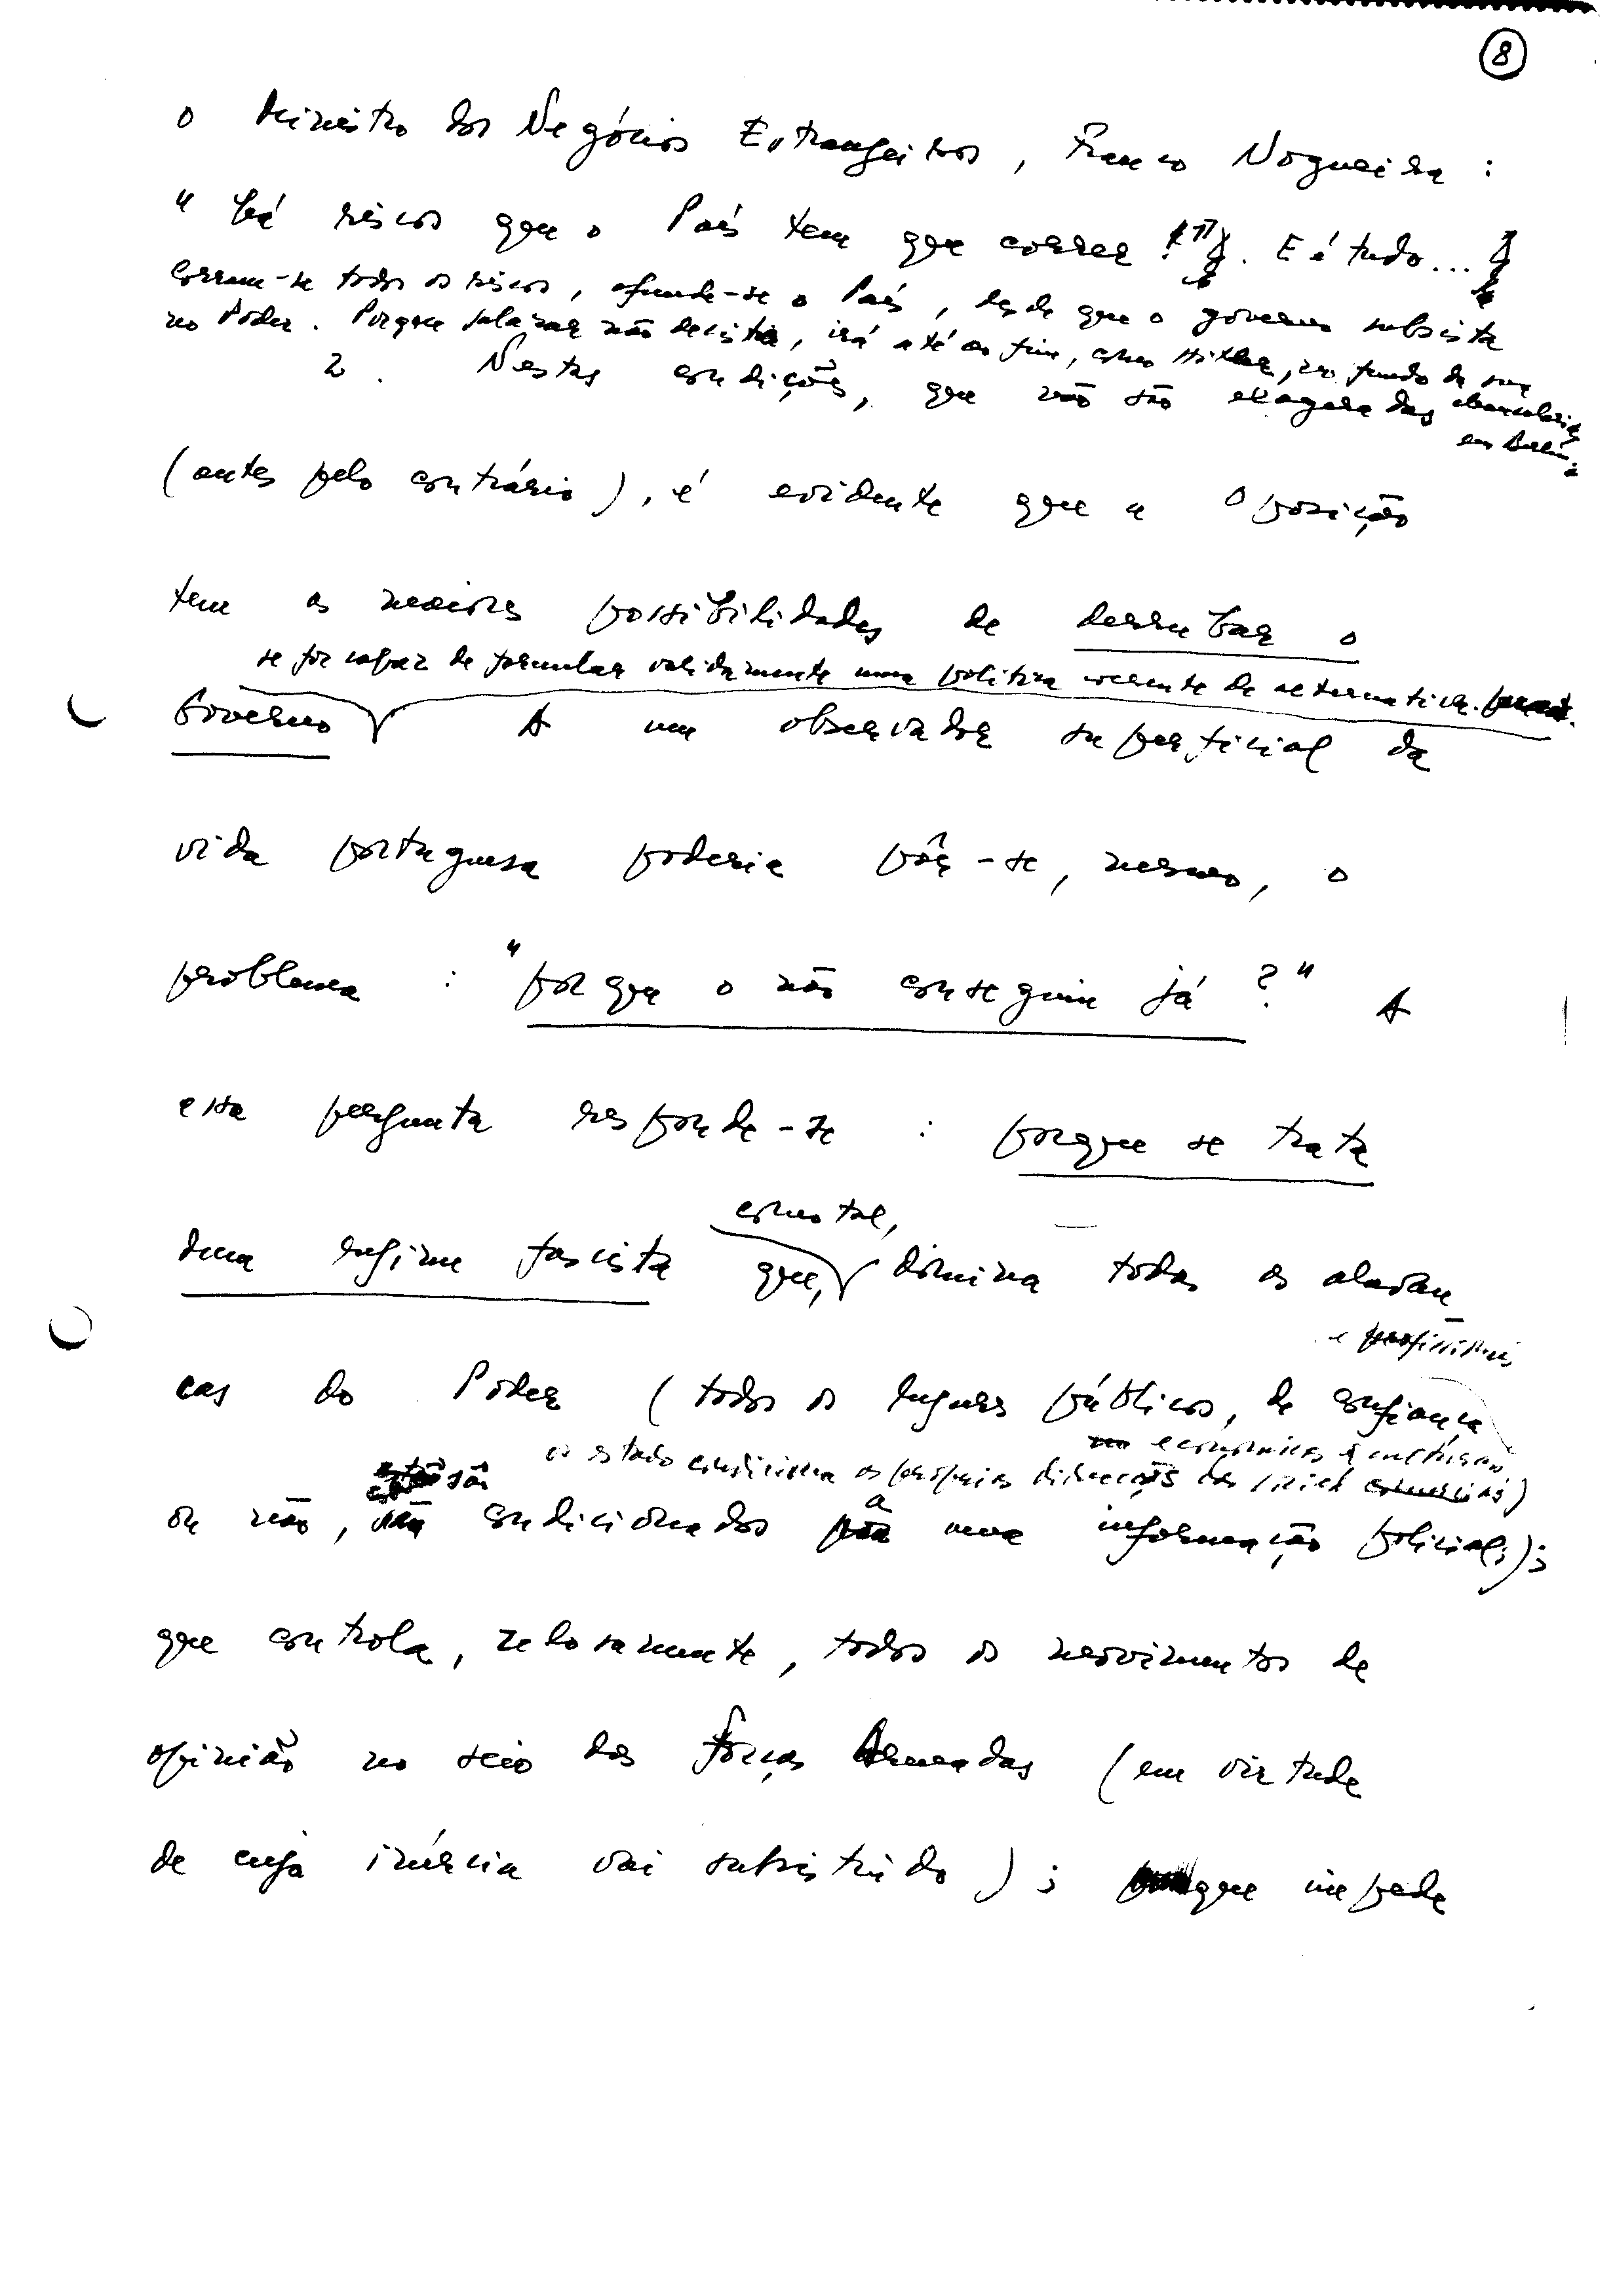 8
o Ministro dos Negócios Estrangeiros, Franco Nogueira :
"há riscos que o País tem que correr!". E é tudo...
Corram-se todos os riscos, afunde-se o País, desde que o governo subsista
no Poder. Porque Salazar não desista, irá até ao fim, como Hitler, no fundo da sua
chancelaria
em Berlim.
2. Nestas condições, que não são exageradas
(antes pelo contrário), é evidente que a Oposição
tem as maiores possibilidades de derrubar o
se for capaz de formular validamente uma política coerente de alternativa.
Governo A um observador superficial da
vida portuguesa poderia pôr-se, mesmo, o
problema : "porque o não conseguiu já ?" A
essa pergunta responde-se : porque se trata
como tal,
dum regime fascista que, domina todas as alavan
e profissionais
cas do Poder (todos os lugares públicos, de confiança
económicas e
o estado condiciona as próprias direcções das
são
ou não, condicionados a uma informação policial;);
que controla, zelosamente, todos os movimentos de
opinião no seio das Forças Armadas (em virtude
de cuja inércia vai subsistindo) ; que impede